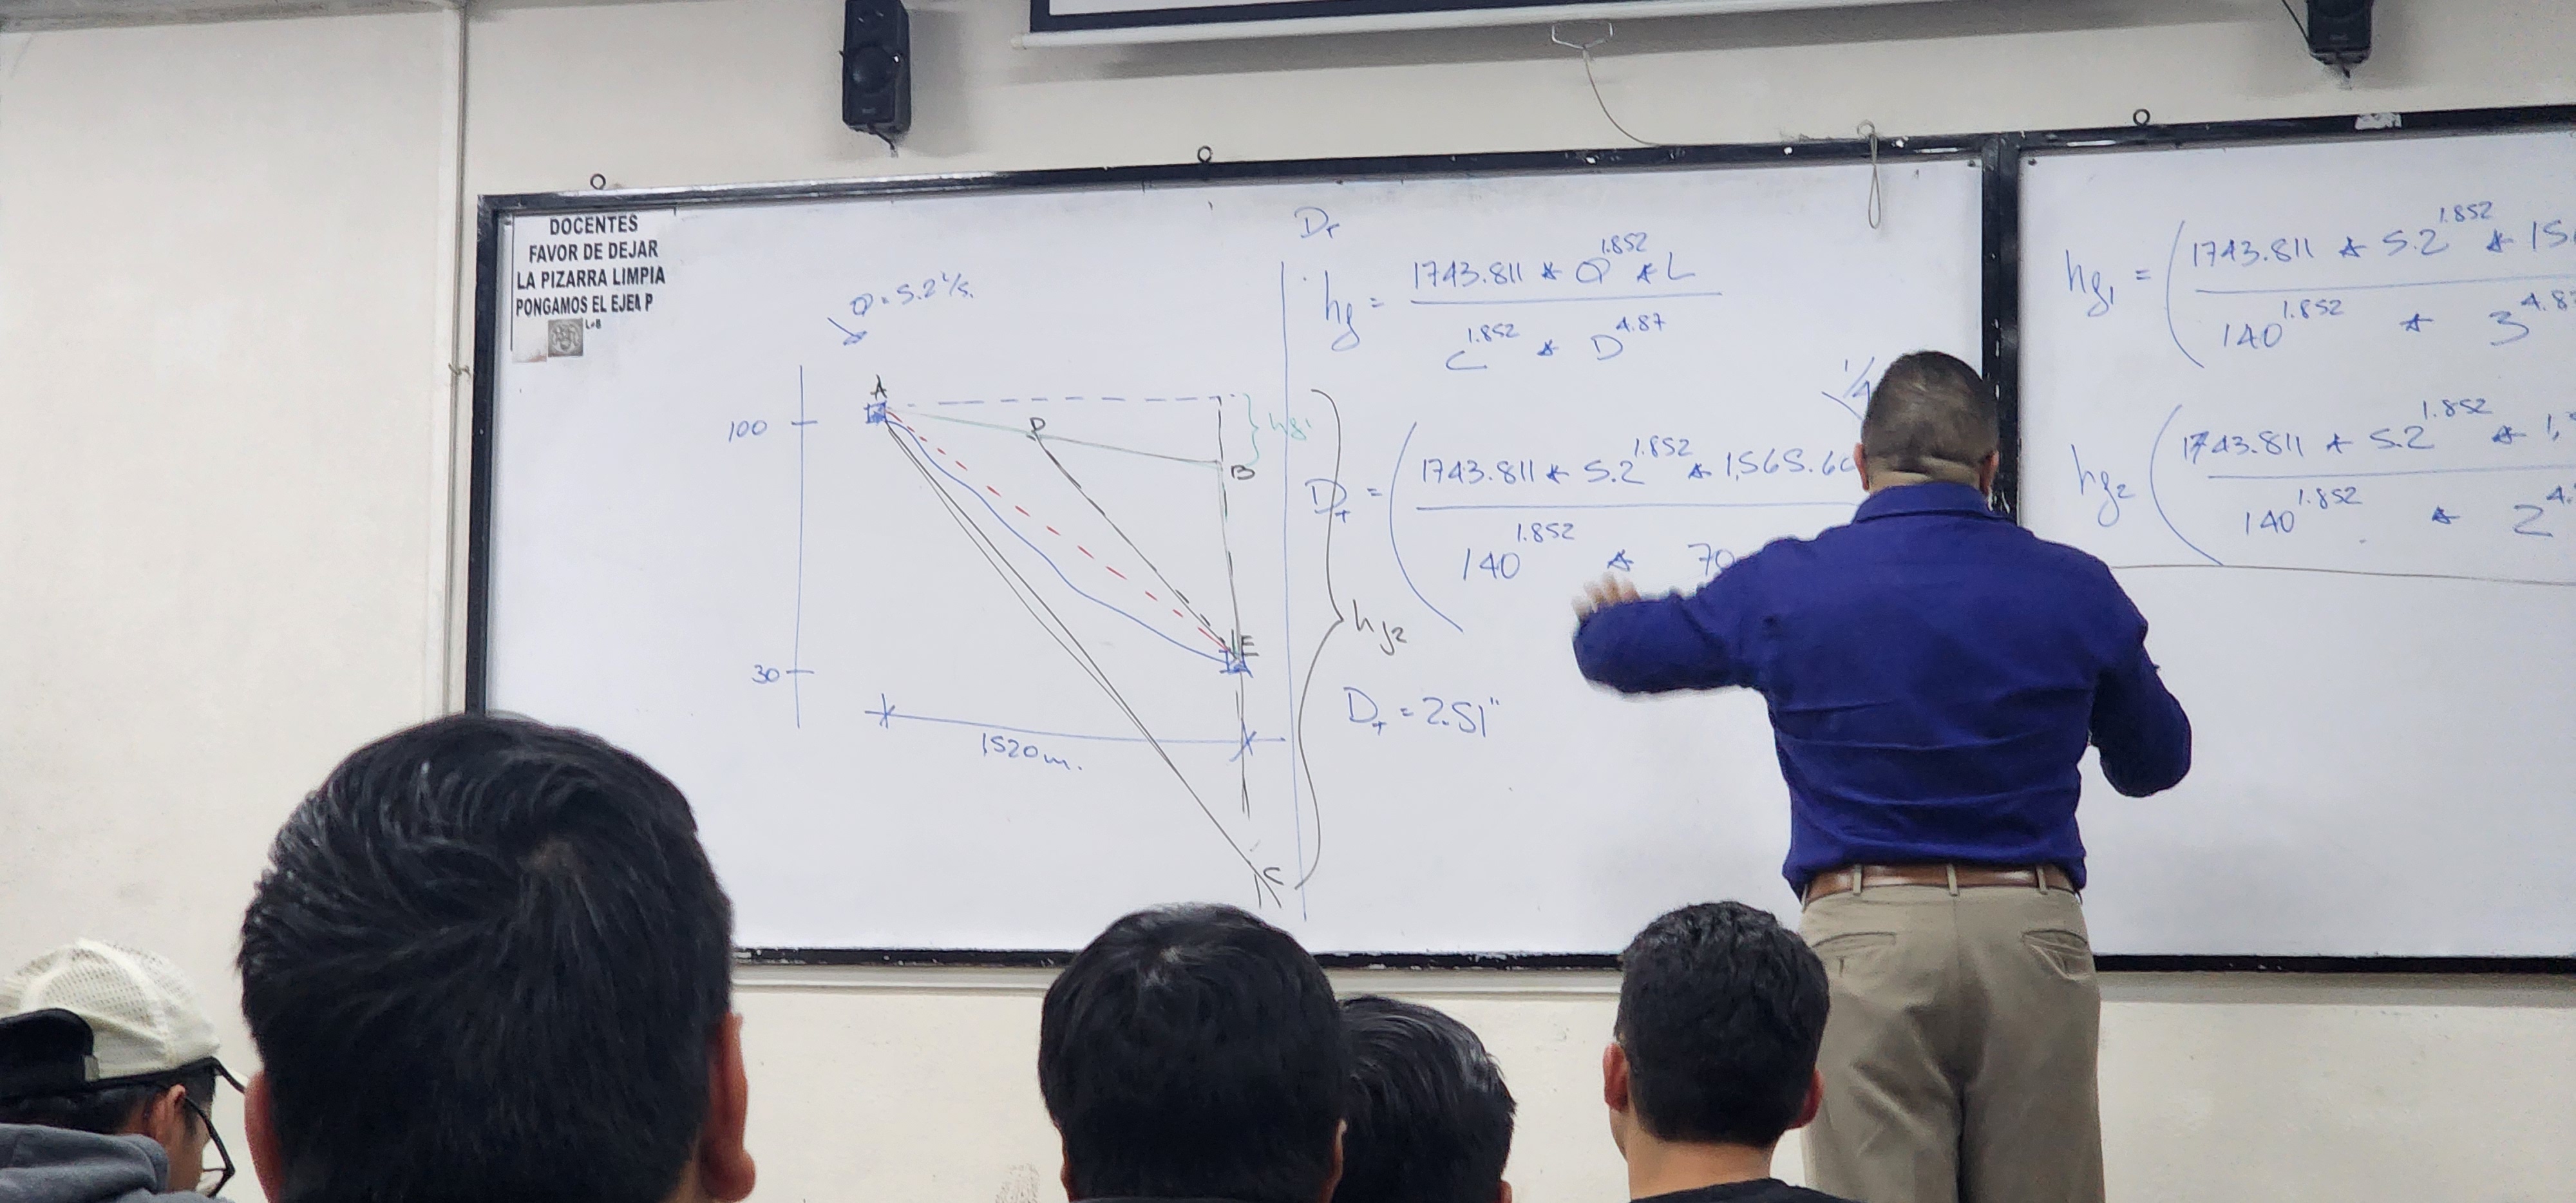 DOCENTES
FAVOR DE DEJAR
LA PIZARRA LIMPIA
PONGAMOS EL
Q = 5.2 l/s.
A
100
B
hg1
30
E
1520m.
C
hg2
hg = 1743.811 * Q^1.852 * L
C^1.852 * D^4.87
= ( 1743.811 * 5.2^1.852 * 1,565.6
140^1.852 * 70
= 2.51"
hg1 = ( 1743.811 * 5.2^1.852 *
140^1.852 * 3
hg2 ( 1743.811 * 5.2^1.852 *
140^1.852 * 2